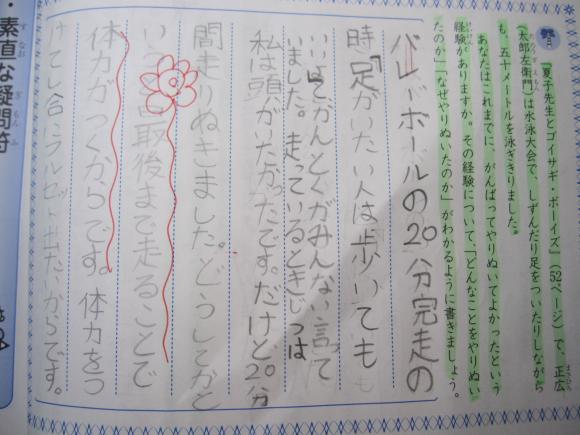 『夏子先生とゴイサギ・ボーイズ』(52ページ)で、正広
(太郎左衛門)は水泳大会で、しずんだり足をついたりしながら
も、五十メートルを泳ぎきりました。
あなたはこれまでに、がんばってやりぬいてよかったという
経験がありますか。その経験について、「どんなことをやりぬい
たのか」「なぜやりぬいたのか」がわかるように書きましょう。
バレーボールの20分完走の
時、「足がいたい人は歩いても
いいよ」とかんとくがみんない言って
いました。走っているときじつは
私は頭がいたかったです。だけど20分
間走りぬきました。どうしてかと
いうと最後まで走ることで
体力がつくからです。体力をつ
けてし合いフルセット出たいからです。
・素直な疑問符